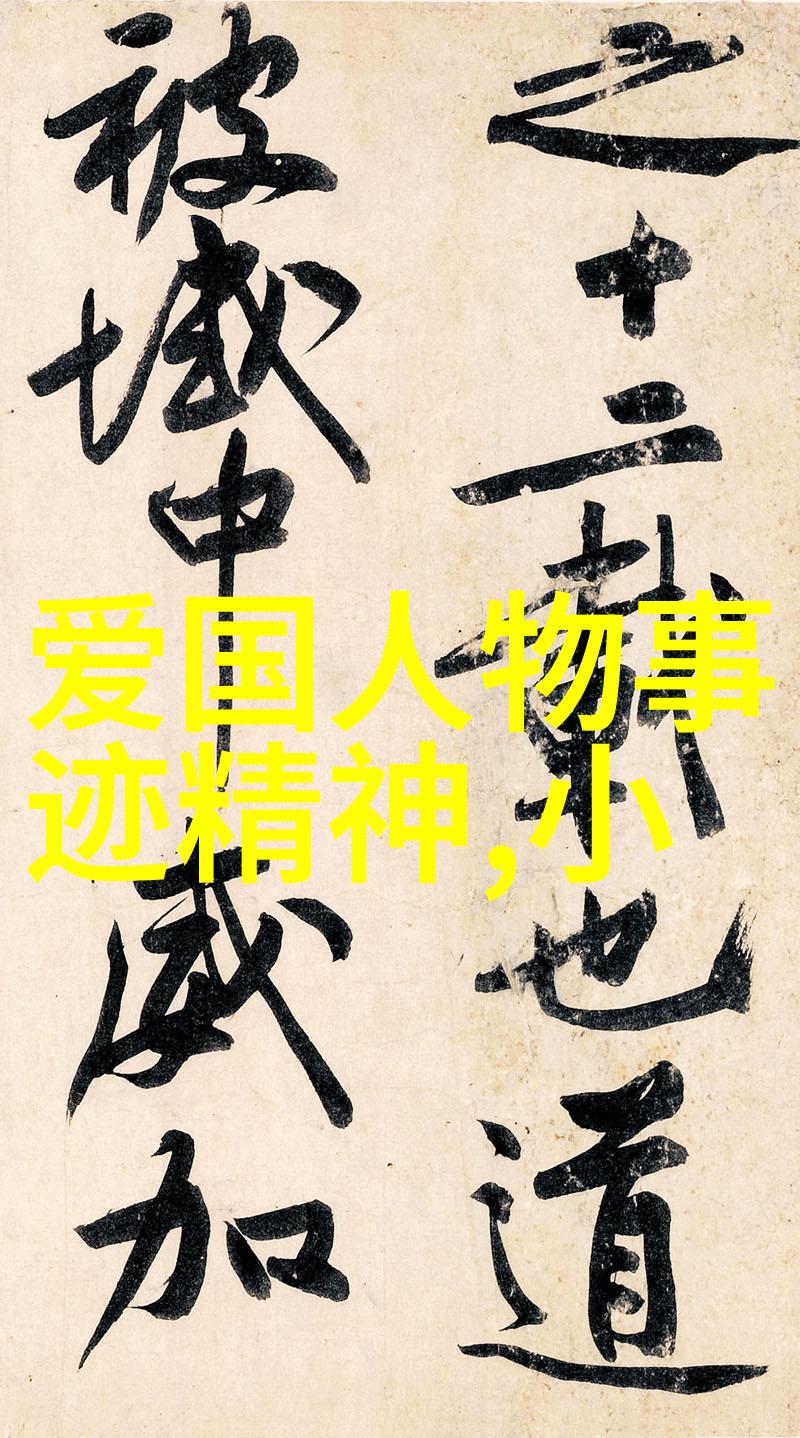 之十二載也道
被域中威加
爱国人物事
迹精神,小